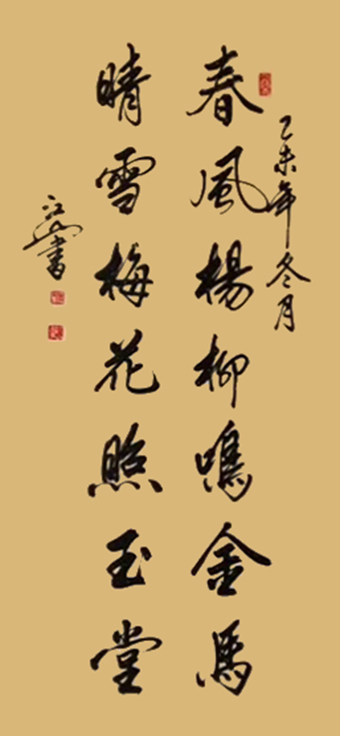 乙未年冬月
春風楊柳鳴金馬
晴雪梅花照玉堂
江山書